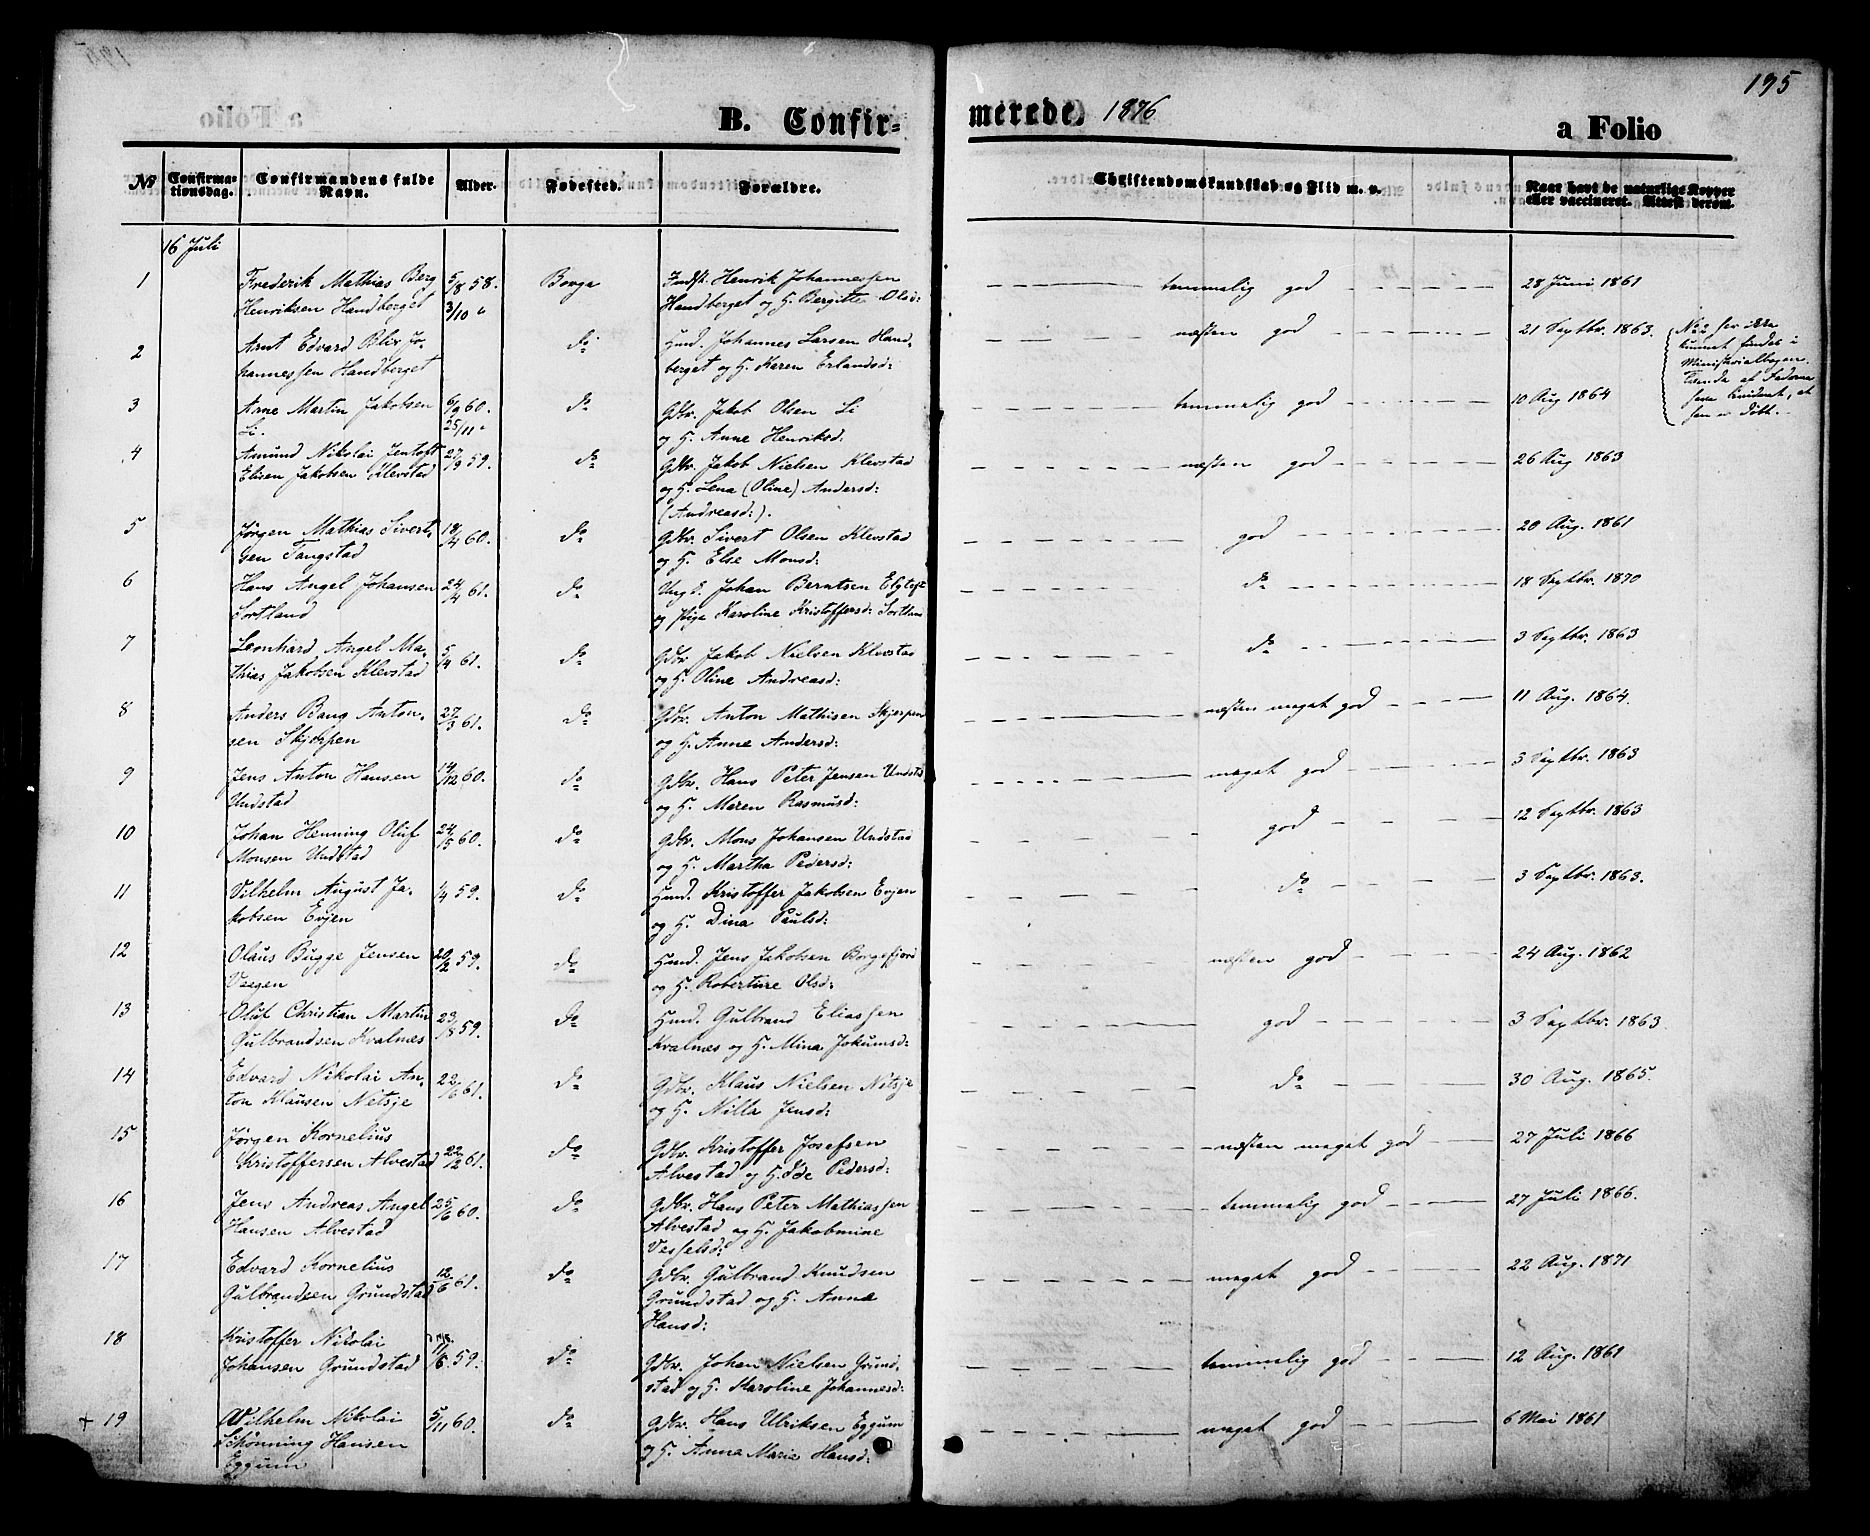 195
B. Confir-
merede 1876
a Folio
No
Confirma-
tionsdag.
Confirmandens fulde
Navn.
Alder.
Fødested.
Forældre.
Christendomskundskab og Flid m. v.
Naar havt de naturlige Kopper
eller vaccineret. Attest derom.
16 Juli
1 Frederik Mathias Berg 5/8 58. Borge Indst. Henrik Johannessen temmelig god 28 Juni 1861
Henriksen Handberget 3/10 " Handberget og H. Bergitte Olsd:
2 Arnt Edvard Blix Jo- do Huusm. Johannes Larsen Hand- næsten god 21 Septbr. 1863.
hannessen Handberget berget og H. Karen Erlandsd:
No 2 her ikke
kunnet findes i
Ministerialbogen.
3 Arne Martin Jakobsen 6/9 60. do Gdbr. Jakob Olsen Li temmelig god 10 Aug 1864
Li. 25/11 " og H. Anne Henriksd:
4 Amund Nikolai Jentoft 27/9 59. do Gdbr. Jakob Nielsen Klevstad næsten god 26 Aug 1863
Elisen Jakobsen Klevstad og H. Lena (Oline) Andersd:
(Andreasd:).
5 Jørgen Mathias Sivert- 18/4 60. do Gdbr. Sivert Olsen Klevstad god 20 Aug. 1861
sen Tangstad og H. Else Monsd:
6 Hans Angel Johansen 24/4 61. do Ungd. Johan Berntsen do 18 Septbr. 1870
Sortland og Pige Karoline Kristoffersd: Sortland
7 Leonhard Angel Ma- 5/4 61. do Gdbr. Jakob Nielsen Klevstad do 3 Septbr. 1863
thias Jakobsen Klevstad og H. Oline Andreasd:
8 Anders Bang Anton- 27/3 61. do Gdbr. Anton Mathisen Skjerpen næsten meget god 11 Aug. 1864.
sen Skjerpen og H. Anne Andersd:
9 Jens Anton Hansen 14/12 60. do Gdbr. Hans Peter Jensen Undstad meget god 3 Septbr. 1863
Undstad og H. Maren Rasmusd:
10 Johan Henning Oluf 24/5 60. do Gdbr. Mons Johansen Undstad god 12 Septbr. 1863
Monsen Undstad og H. Martha Pedersd:
11 Vilhelm August Ja- 1/4 59. do Huusm. Kristoffer Jakobsen Evjen do 3 Septbr. 1863.
kobsen Evjen og H. Dina Paulsd:
12 Olaus Bugge Jensen 20/2 59. do Huusm. Jens Jakobsen Borgefjord næsten god 24 Aug. 1862
Vaagen og H. Robertine Olsd:
13 Oluf Christian Martin 23/8 59. do Huusm. Gulbrand Eliassen god 3 Septbr. 1863.
Gulbrandsen Kvalnæs Kvalnæs og H. Mina Jokumsd:
14 Edvard Nikolai An- 22/6 61. do Gdbr. Klaus Nielsen Netsje do 30 Aug. 1865.
ton Klausen Netsje og H. Nilla Jensd:
15 Jørgen Kornelius do Gdbr. Kristoffer Josefsen næsten meget god 27 Juli 1866
Kristoffersen Alvestad 22/12 61. Alvestad og H. Ide Pedersd:
16 Jens Andreas Angel 25/6 60. do Gdbr. Hans Peter Mathiassen temmelig god 27 Juli 1866.
Hansen Alvestad Alvestad og H. Jakobmine
Vesselsd:
17 Edvard Kornelius 12/6 61. do Gdbr. Gulbrand Knudsen meget god 22 Aug. 1871
Gulbrandsen Grundstad Grundstad og H. Anne
Hansd:
18 Kristoffer Nikolai
Johansen Grundstad 59. do Gdbr. Johan Nielsen Grund- temmelig god 12 Aug. 1861
stad og H. Karoline Johannesd:
+ 19 Wilhelm Nikolai 5/11 60. do Gdbr. Hans Ulriksen Eggum meget god 6 Mai 1861
Schønning Hansen og H. Anna Maria Hansd:
Eggum